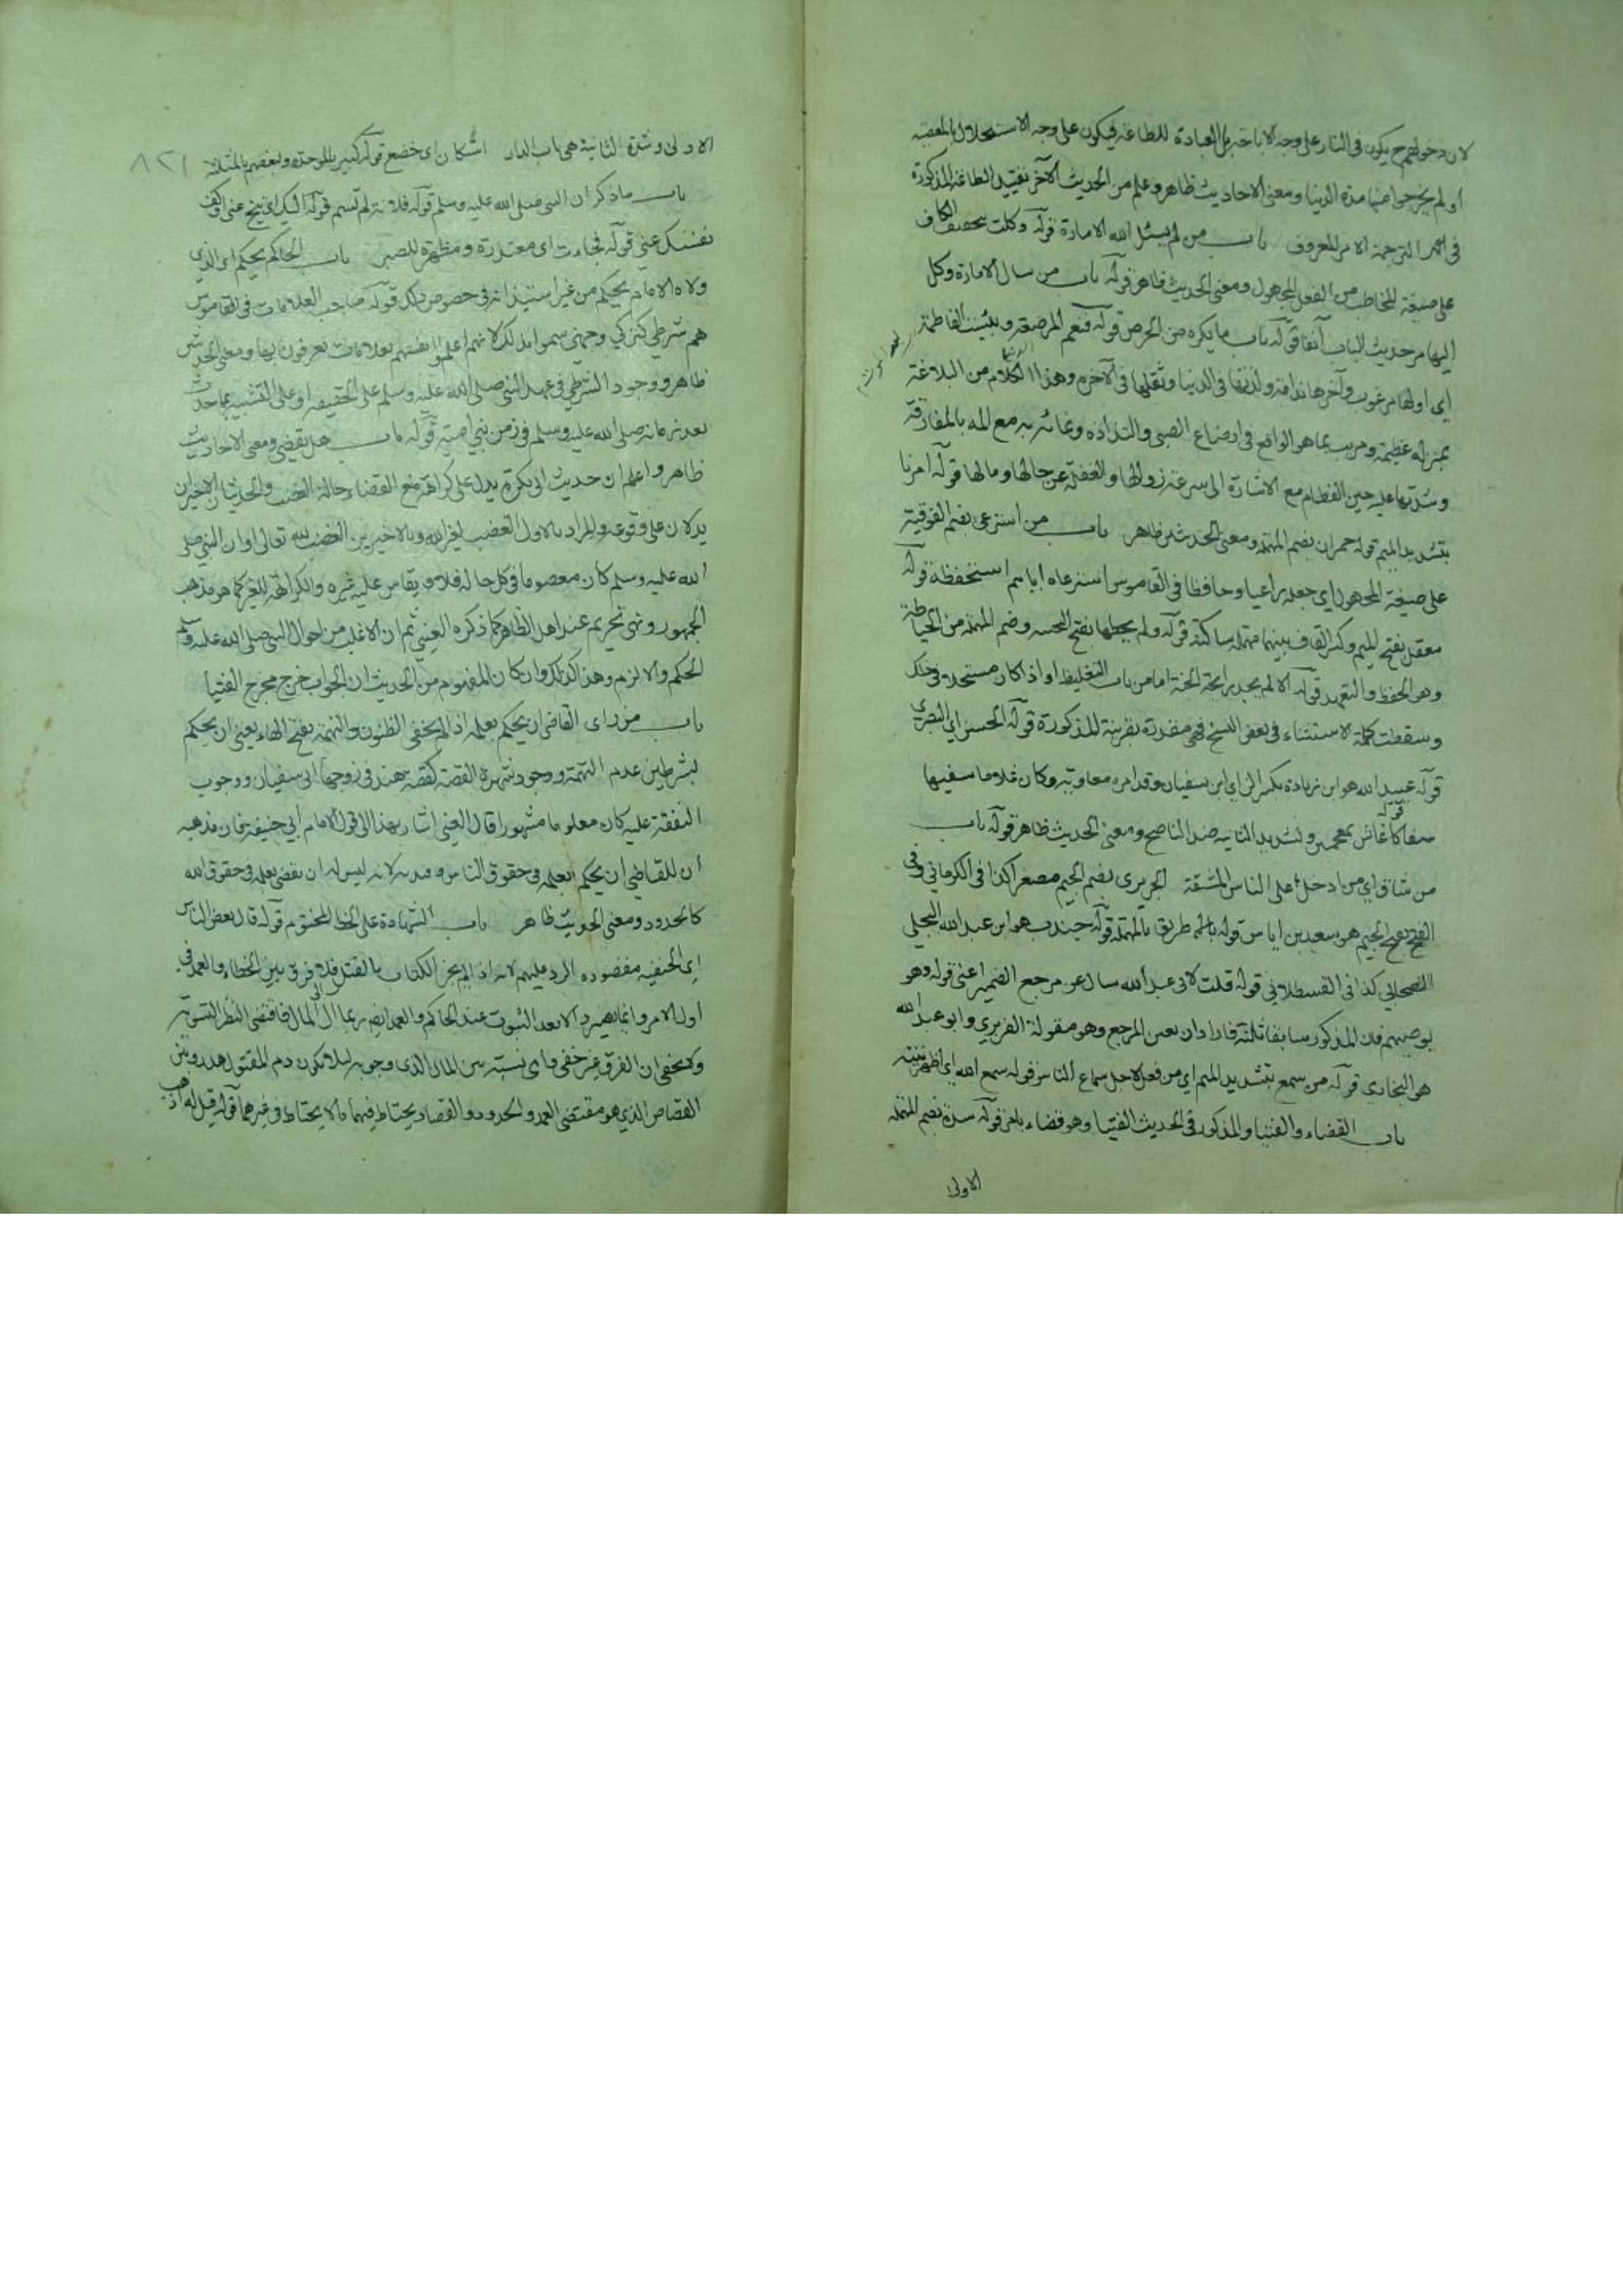 لان دخولهم ح يكون في النار على وجه الاباحة بل العبادة للطاعة فيكون على وجه الاستحلال بالمعصية
او لم يخرجوا منها مدة الدنيا ومعنى الاحاديث ظاهر وعلم من الحديث الآخر تقييد الطاعة المذكورة
في الترجمة الامر المعروف باب من لم يسئل الله الامارة قوله وكلت بتخفيف الكاف
على صيغة المخاطب من الفعل المجهول ومعنى الحديث ظاهر قوله باب من سال الامارة وكل
اليها مر حديث الباب آنفا قوله باب ما يكره من الحرص قوله فنعم المرضعة وبئست الفاطمة
اي اولها مرغوب وآخرها ندامة ولذتها في الدنيا وثقلها في الآخرة وهذا الكلام من البلاغة
بمنزلة عظيمة بما هو الواقع في ارضاع الصبي والتذاذه
وشدتها عليه حين الفطام مع الاشارة الى سرعة زوالها والغفلة عن حالها ومالها قوله امرنا
بتشديد الميم قوله حمران بضم المهملة ومعنى الحديث ظاهر باب من استرعى بضم الفوقية
على صيغة المجهول اي جعله راعيا وحافظا في القاموس استرعاه اياهم استحفظه قوله
معقل بفتح الميم وكسر القاف بينهما مهملة ساكنة قوله ولم يحطها بفتح التحتية وضم المهملة من الحياطة
وهو الحفظ والتعهد قوله الا لم يجد رائحة الجنة اما من باب التغليظ او اذا كان مستحلا في ذلك
وسقطت كلمة الاستثناء في بعض النسخ فهي مقدرة بقرينة المذكورة قوله الحسن اي البصري
قوله عبيد الله هو ابن زياده بكسر الزاي ابن سفيان وقد امره معاوية وكان غلاما سفيها
سفاكا قوله غاش بمعجمتين وتشديد الثانية ضد الناصح ومعنى الحديث ظاهر قوله باب
من شاق اي من ادخل على الناس المشقة الجريري بضم الجيم مصغرا كذا في الكرماني وفي
الفتح بفتح الجيم هو سعيد بن اياس قوله طريف بالمهملة قوله جندب هو ابن عبد الله البجلي
الصحابي كذا في القسطلاني قوله قلت لابي عبد الله سال عن مرجع الضمير اعنى قوله وهو
يوصيهم فان المذكور سابقا ثلثة فاراد ان يعين المرجع وهو مقولة الفربري وابو عبد الله
هو البخاري قوله من سمع بتشديد الميم اي من فعل لاجل سماع الناس قوله سمع الله اي اظهر نيته
باب القضاء والفتيا والمذكور في الحديث الفتيا وهو قضاء قوله سدة بضم المهملة
الاولى
٨٢١
الاولى وشدة الثانية هي باب الدار استكان اي خضع قوله كبير بالموحدة وبعضهم بالمثلثة
باب ما ذكر ان النبي صلى الله عليه وسلم قوله فلانة لم تسم قوله اليك اي تنح عني وكف
نفسك عني قوله فجاءت اي معتذرة ومظهرة للصبر باب الحاكم يحكم اي الذي
ولاه الامام يحكم من غير استيذانه في خصوص ذلك قوله صاحب العلامات في القاموس
هم شرطي كتركي وجهني سموا بذلك لانهم اعلموا انفسهم بعلامات يعرفون بها ومعنى الحديث
ظاهر ووجود الشرطي في عهد النبي صلى الله عليه وسلم على الحقيقة او على التشبيه بما حدث
بعد زمانه صلى الله عليه وسلم في زمن بني امية قوله باب هل يقضي ومعنى الاحاديث
ظاهر واعلم ان حديث ابي بكرة يدل على كراهة القضاء حالة الغضب والحديثان الاخيران
يدلان على وقوعه والمراد بالاول الغضب لغير الله وبالاخيرين الغضب لله تعالى او ان النبي صلى
الله عليه وسلم كان معصوما في كل حاله فلا يقاس عليه غيره والكراهة للغير كما هو مذهب
الجمهور ونهي تحريم عند اهل الظاهر كما ذكره العيني ثم ان الاغلب من احوال النبي صلى الله عليه وسلم
الحكم والالزام وهذا كذلك وان كان المفهوم من الحديث ان الجواب خرج مخرج الفتيا
باب من راى القاضي ان يحكم بعلمه اذا لم يخفى الظنون والتهمة بفتح الهاء يعني ان يحكم
بشرطين عدم التهمة ووجود شهرة القصة كقصة هند في زوجها ابي سفيان ووجوب
النفقة عليه كان معلوما مشهورا قال العيني اشار بهذا الى قول الامام ابي حنيفة فان مذهبه
ان للقاضي ان يحكم بعلمه في حقوق الناس لانه ليس له ان يقضي بعلمه في حقوق الله
كالحدود ومعنى الحديث ظاهر باب الشهادة على الخط المختوم قوله قال بعض الناس
اي الحنفية مقصوده الرد عليهم لانه اذا لم يجز الكتاب بالقتل فلا فرق بين الخطاء والعمد في
اول الامر وانما يصير الا بعد الثبوت عند الحاكم والعمد ايضا ربما آل الى المال فاقتضى النظر التسوية
ولا يخفى ان الفرق غير خفي واي نسبة بين المال الذي وجوبه لئلا يكون دم المقتول هدرا وبين
القصاص الذي هو مقتضى العمد والحدود والقصاص يحتاط فيهما مالا يحتاط في غيرهما قوله قبل له